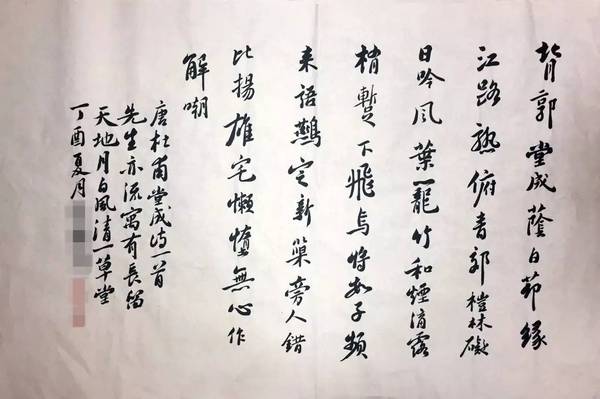 背郭堂成蔭白茆緣
江路熟俯青郊榿林礙
日吟風葉籠竹和煙滴露
梢暫下飛烏將數子頻
來語鷰定新巢旁人錯
比揚雄宅懶惰無心作
解嘲
唐杜甫堂成诗一首
先生亦流寓有長留
天地月白風清一草堂
丁酉夏月